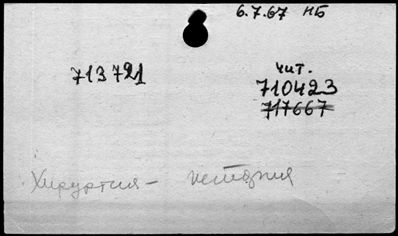 6.7.67 НБ
713721
чит.
710423
717667
Хирургия - история